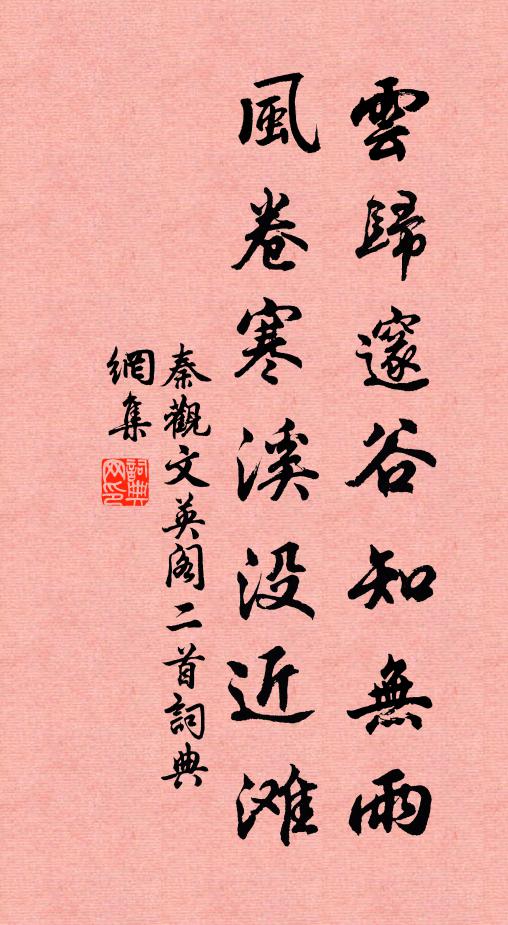 雲歸邃谷知無雨
風卷寒溪没近滩
秦觀文英阁二首詞典
網集
詞典
网印